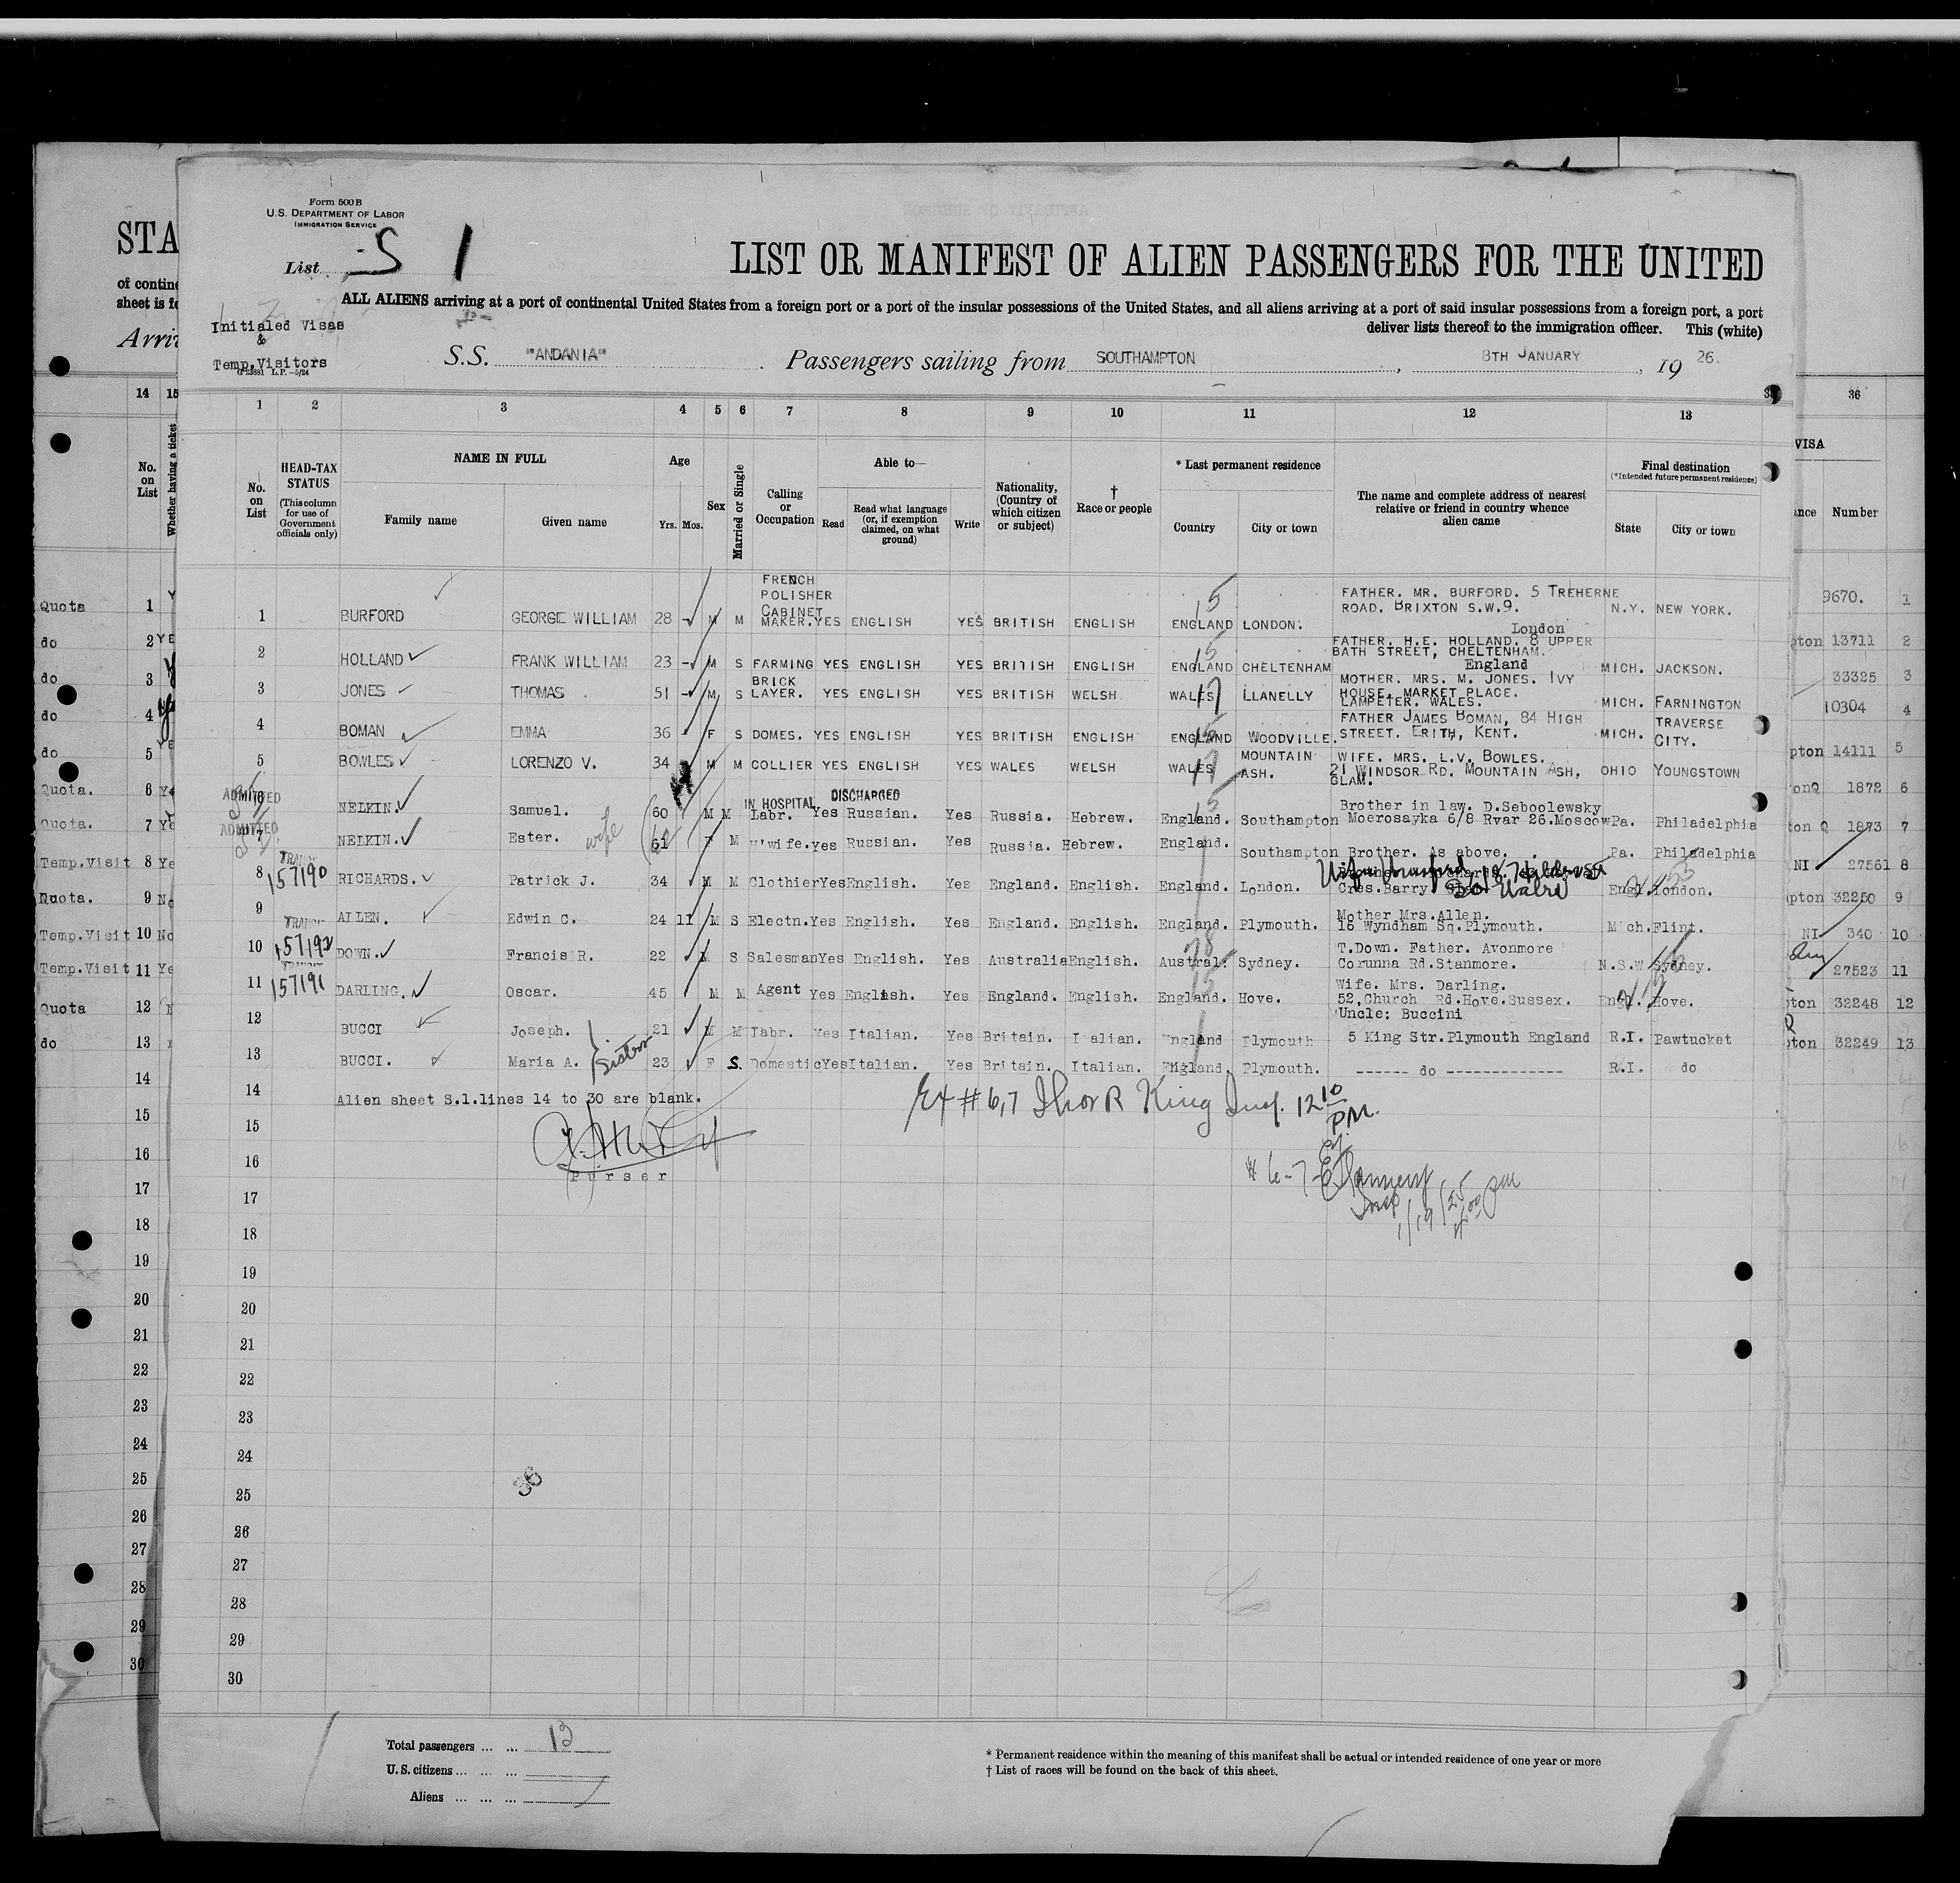 Form 500 B
U.S. DEPARTMENT OF LABOR
IMMIGRATION SERVICE
List S 1
STA
LIST OR MANIFEST OF ALIEN PASSENGERS FOR THE UNITED
of contine
sheet is fo
ALL ALIENS arriving at a port of continental United States from a foreign port or a port of the insular possessions of the United States, and all aliens arriving at a port of said insular possessions from a foreign port, a port
deliver lists thereof to the immigration officer. This (white)
Initialed Visas
&
Temp.Visitors
G 23881 L.P.—5/24
Arri
S.S. "ANDANIA" Passengers sailing from SOUTHAMPTON, 8TH JANUARY, 19 26.
14 15 1 2 3 4 5 6 7 8 9 10 11 12 13 36
No. on List
Whether having a ticket
No. on List
HEAD-TAX STATUS
(This column for use of Government officials only)
NAME IN FULL
Family name
Given name
Age
Yrs. Mos.
Sex
Married or Single
Calling or Occupation
Able to—
Read
Read what language (or, if exemption claimed, on what ground)
Write
Nationality, (Country of which citizen or subject)
† Race or people
* Last permanent residence
Country
City or town
The name and complete address of nearest relative or friend in country whence alien came
Final destination
(*Intended future permanent residence)
State
City or town
VISA
ance Number
Quota 1 Y
1 BURFORD GEORGE WILLIAM 28 M M FRENCH POLISHER CABINET MAKER. YES ENGLISH YES BRITISH ENGLISH ENGLAND LONDON. FATHER. MR. BURFORD. 5 TREHERNE ROAD. BRIXTON S.W.9. N.Y. NEW YORK. 9670. 1
London
do 2 YE
2 HOLLAND FRANK WILLIAM 23 M S FARMING YES ENGLISH YES BRITISH ENGLISH ENGLAND CHELTENHAM FATHER. H.E. HOLLAND. 8 UPPER BATH STREET, CHELTENHAM. England MICH. JACKSON. pton 13711 2
do 3
3 JONES THOMAS 51 M S BRICK LAYER. YES ENGLISH YES BRITISH WELSH WALES LLANELLY MOTHER. MRS. M. JONES. IVY HOUSE. MARKET PLACE. LAMPETER. WALES. MICH. FARNINGTON 33325 3
do 4
4 BOMAN EMMA 36 F S DOMES. YES ENGLISH YES BRITISH ENGLISH ENGLAND WOODVILLE. FATHER JAMES BOMAN, 84 HIGH STREET. ERITH, KENT. MICH. TRAVERSE CITY. 10304 4
do 5 YE
5 BOWLES LORENZO V. 34 M M COLLIER YES ENGLISH YES WALES WELSH WALES MOUNTAIN ASH. WIFE. MRS. L.V. BOWLES. 21 WINDSOR RD. MOUNTAIN ASH, GLAM. OHIO YOUNGSTOWN pton 14111 5
Quota. 6 Ye
ADMITTED 6 NELKIN. Samuel. 60 M M IN HOSPITAL DISCHARGED Labr. Yes Russian. Yes Russia. Hebrew. England. Southampton Brother in law. D.Seboolewsky Moerosayka 6/8 Rvar 26.Moscow Pa. Philadelphia onQ 1872 6
Quota. 7 Ye
ADMITTED 7 NELKIN. Ester. wife 61 F M H'wife. yes Russian. Yes Russia. Hebrew. England. Southampton Brother. As above. Pa. Philadelphia ton Q 1873 7
Temp.Visit 8 Ye
8 TRANSIT 157190 RICHARDS. Patrick J. 34 M M Clothier Yes English. Yes England. English. England. London. Cres.Barry Engl. London. NI 27561 8
Quota. 9 No
9 ALLEN. Edwin C. 24 11 M S Electn. Yes English. Yes England. English. England. Plymouth. Mother Mrs.Allen. 16 Wyndham Sq.Plymouth. Mich. Flint. pton 32250 9
Temp.Visit 10 No
10 TRANSIT 157192 DOWN. Francis R. 22 M S Salesman Yes English. Yes Australia English. Austral. Sydney. T.Down. Father. Avonmore Corunna Rd.Stanmore. N.S.W Sydney. NI 340 10
Temp.Visit 11 Ye
11 TRANSIT 157191 DARLING. Oscar. 45 M M Agent Yes English. Yes England. English. England. Hove. Wife. Mrs. Darling. 52,Church Rd.Hove.Sussex. Engl. Hove. 27523 11
Quota 12
12 BUCCI Joseph. 21 M M Labr. Yes Italian. Yes Britain. Italian. England Plymouth Uncle: Buccini 5 King Str.Plymouth England R.I. Pawtucket pton 32248 12
do 13
13 BUCCI. Maria A. Sister 23 F S. Domestic Yes Italian. Yes Britain. Italian. England. Plymouth. ------ do ------------- R.I. do pton 32249 13
14 14 Alien sheet S.1.lines 14 to 30 are blank.
Ex # 6,7 Thor R King Insp. 12 10 P.M.
15 15
16 16
Purser
# 6-7 Insp 1/19/25 4:00 PM
17 17
18 18
19 19
20 20
21 21
22 22
23 23
24 24
25 25
26 26
27 27
28 28
29 29
30 30
Total passengers ... ... 13
U. S. citizens ... ... ...
Aliens ... ... ...
* Permanent residence within the meaning of this manifest shall be actual or intended residence of one year or more
† List of races will be found on the back of this sheet.